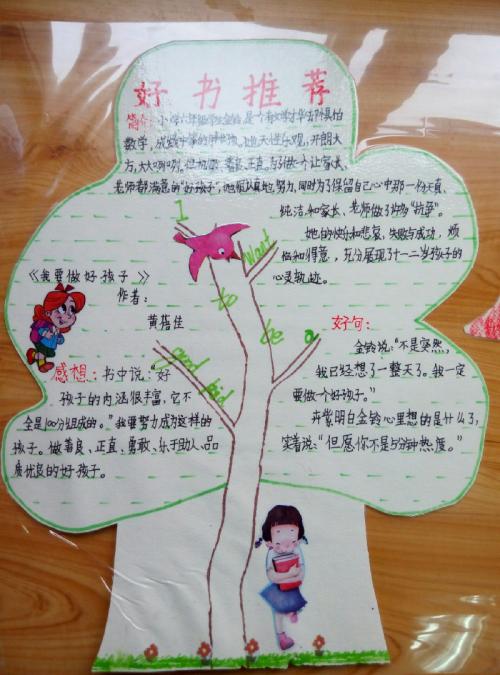 好书推荐
简介:小学六年级学生金铃是一个有文学才华却惧怕
数学,成绩中等的胖女孩。她天性乐观,开朗大
方,大大咧咧。但机敏、善良、正直。为了做一个让家长、
老师都满意的"好孩子",她很认真地努力,同时为了保留自己心中那一份天真、
纯洁,和家长、老师做了许多"抗争"。
她的快乐和悲哀,失败与成功,烦
恼和得意,充分展现了十一二岁孩子的
心灵轨迹。
I want
to be a
good kid
《我要做好孩子》
作者:
黄蓓佳
感想:书中说:"好
孩子的内涵很丰富,它不
全是100分组成的。"我要努力成为这样的
孩子。做善良、正直、勇敢、乐于助人、品
质优良的好孩子。
好句:
金铃说:"不是突然,
我已经想了一整天了。我一定
要做个好孩子。"
卉紫明白金铃心里想的是什么了,
笑着说:"但愿你不是5分钟热度。"